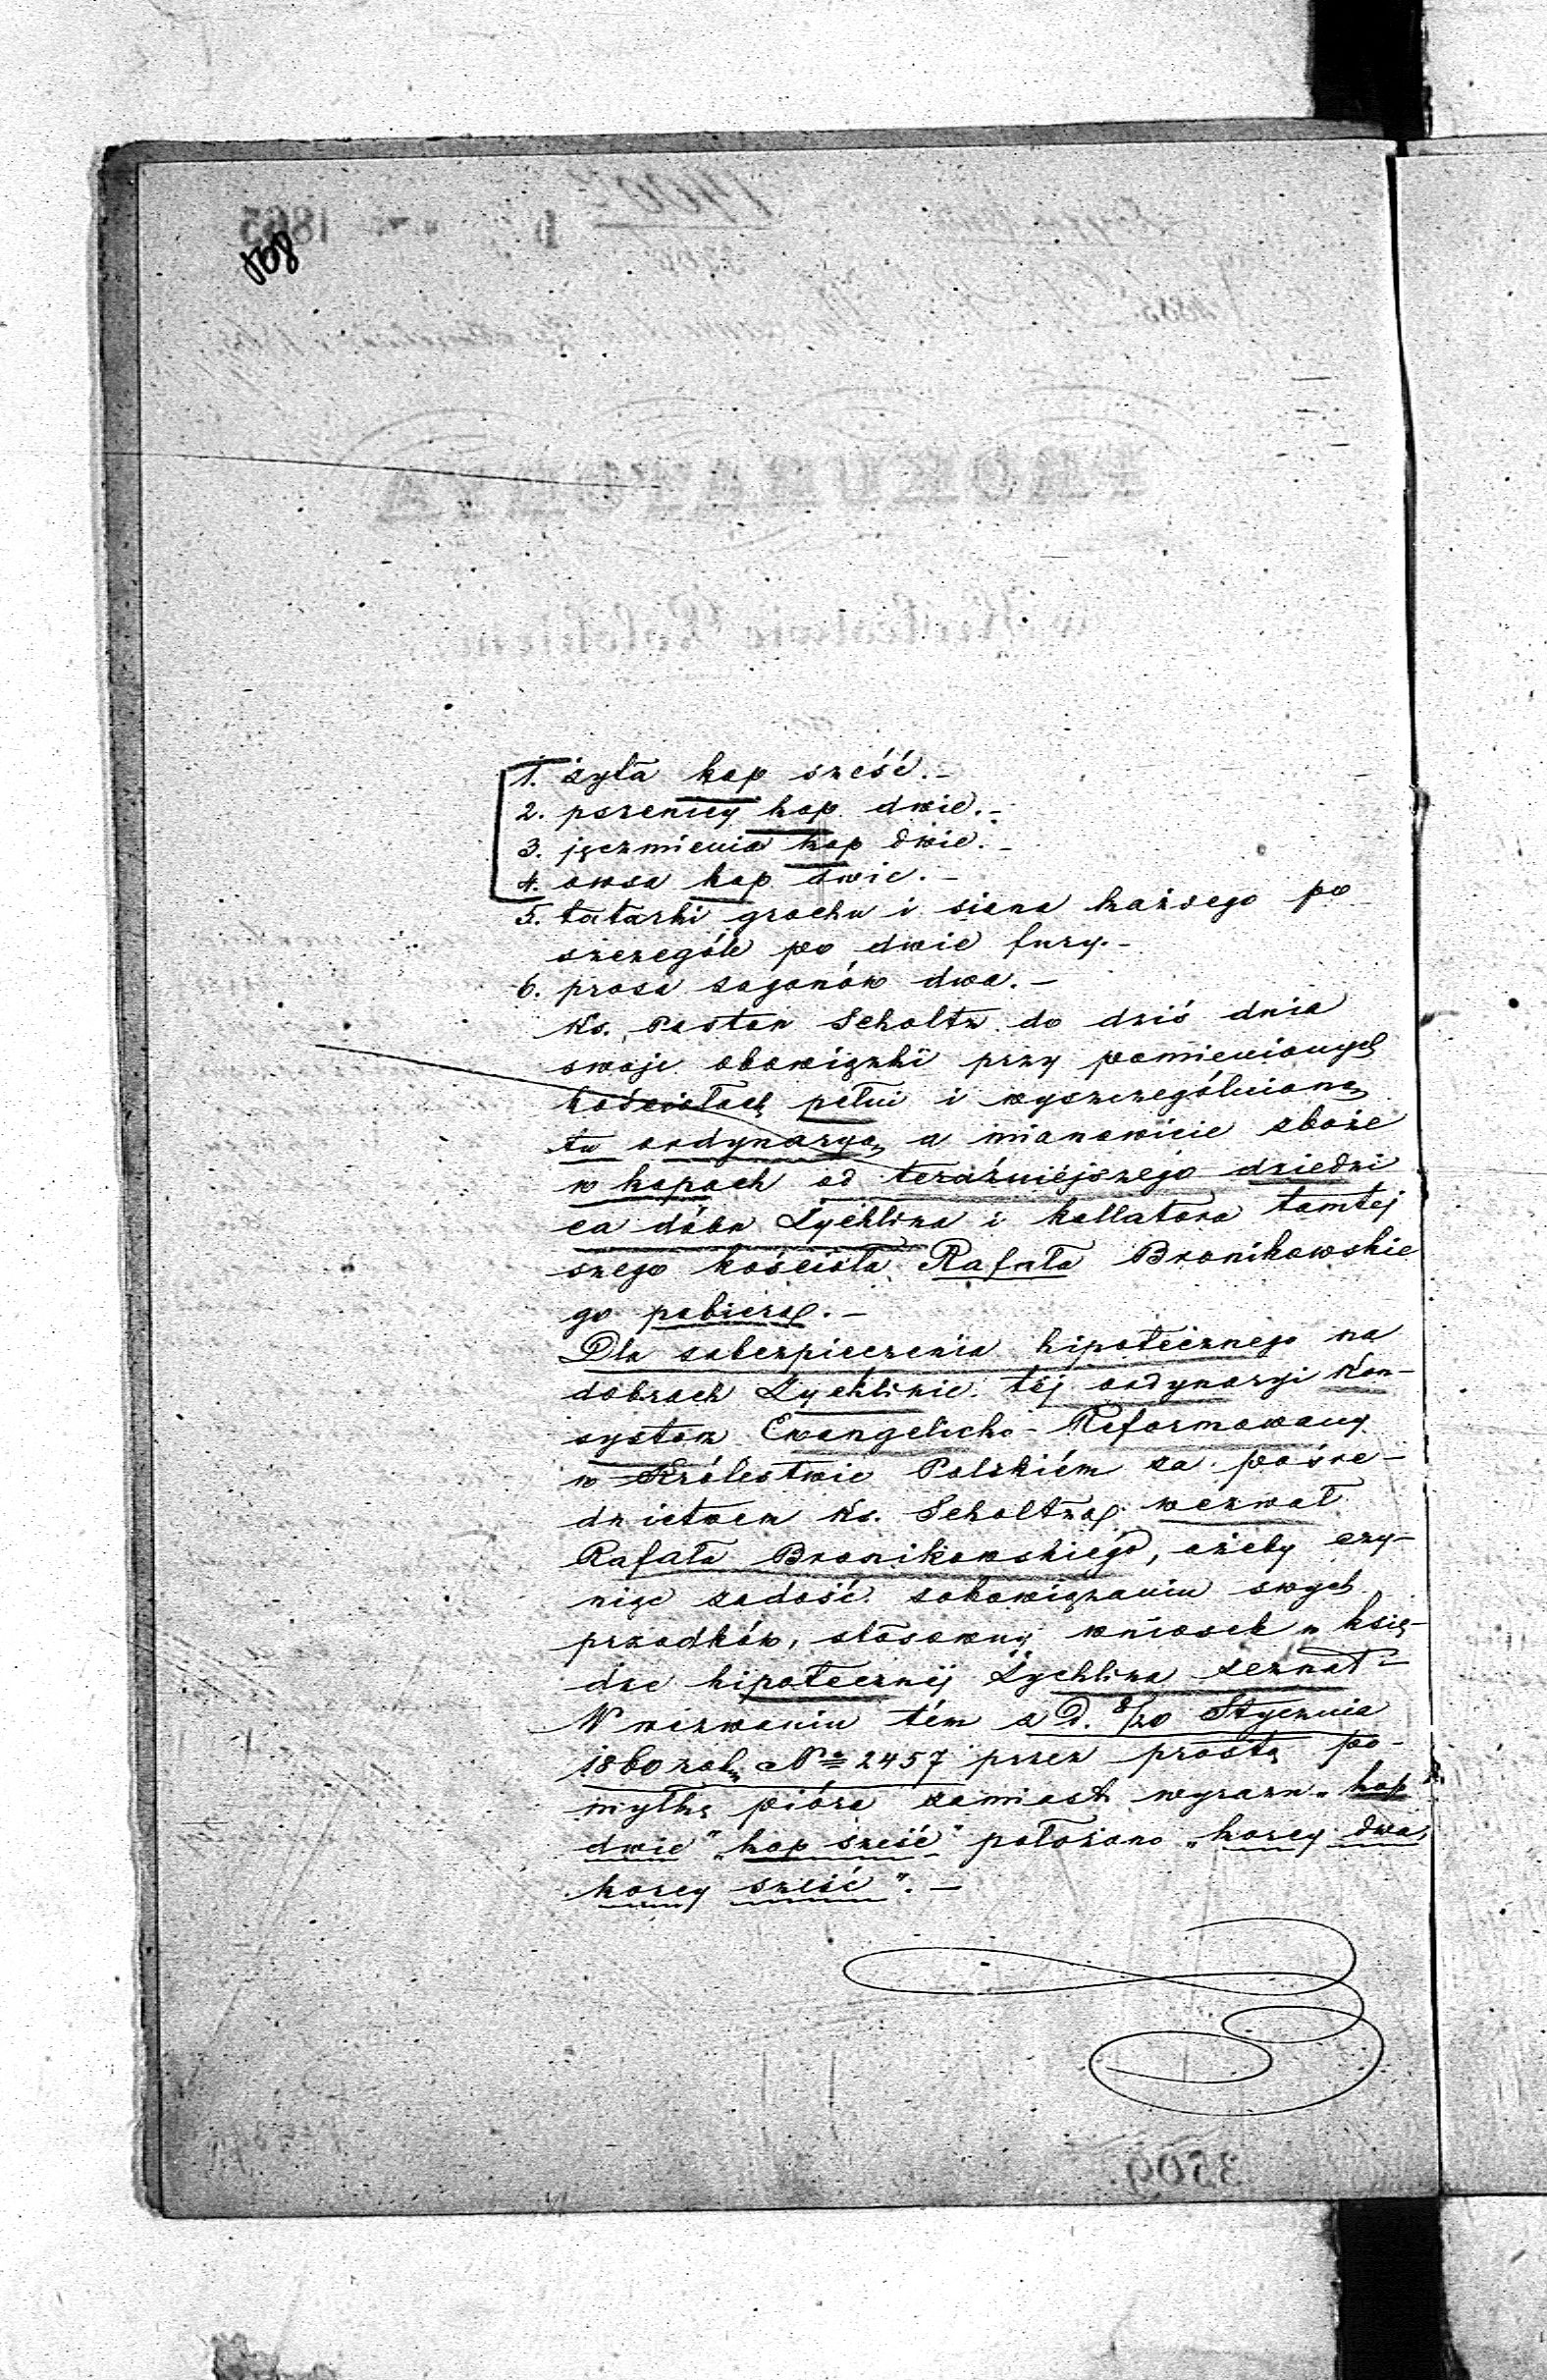 108
1. żyta kop sześć.-
2. pszenicy kop dwie.-
3. jęczmienia kop dwie.-
4. owsa kop dwie.-
5. tatarki grochu i siana każdego po
szczególe po dwie fury.-
6. prosa zagonów dwa.-
Ks. Pastor Scholtz do dziś dnia
swoje obowiązki przy pomienionych
kościołach pełni i wyszczególnioną
tu ordynaryą, a mianowicie zboże
w kopach od teraźniejszego dziedzi
ca dóbr Żychlina i kollatora tamtej
szego kościoła Rafała Bronikowskie
go pobiera.-
Dla zabezpieczenia hipotecznego na
dobrach Żychlinie téj ordynaryi Kon-
systorz Ewangelicko-Reformowany
w Królestwie Polskiém za pośre-
dnictwem Ks. Scholtza wezwał
Rafała Bronikowskiego, ażeby czy-
niąc zadość zobowiązaniu swych
przodków, stósowny wniosek w księ-
dze hipotecznéj Żychlina zeznał-
W wezwaniu tém z d. 8/20 Stycznia
1860 roku No 2457 przez prostą po-
myłkę pióra zamiast wyrazu „kop
dwie" „kop sześć" położono „korcy dwa,
korcy sześć".-
3509